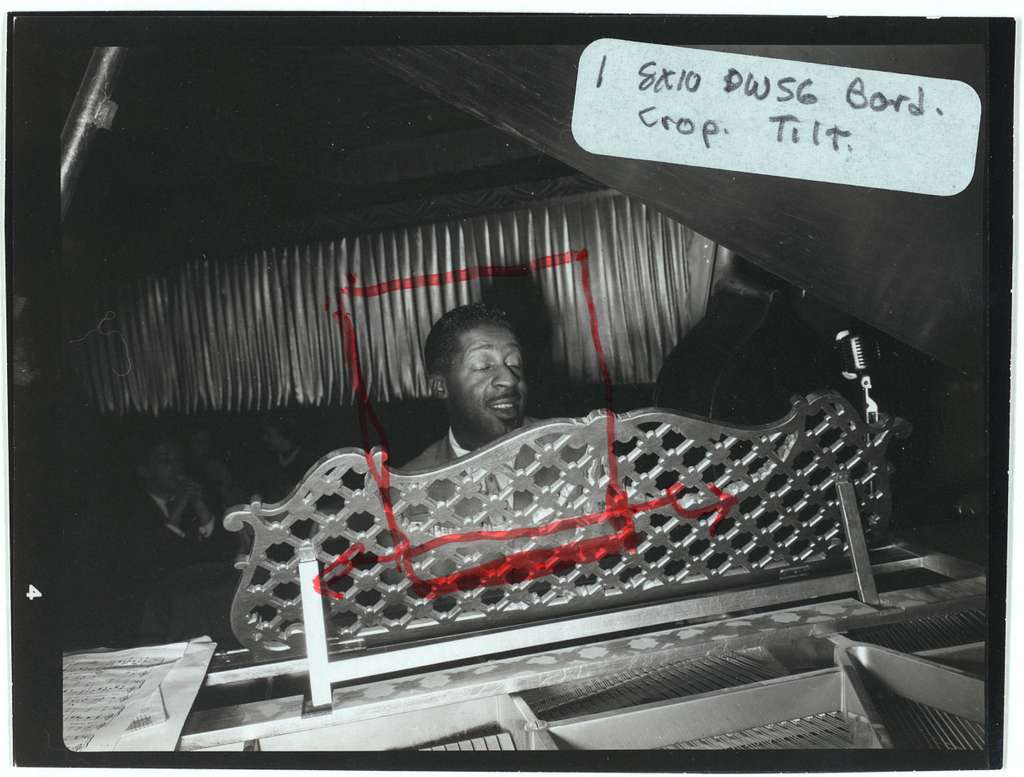 1 8x10 DW56 Bord.
Crop. Tilt.
4